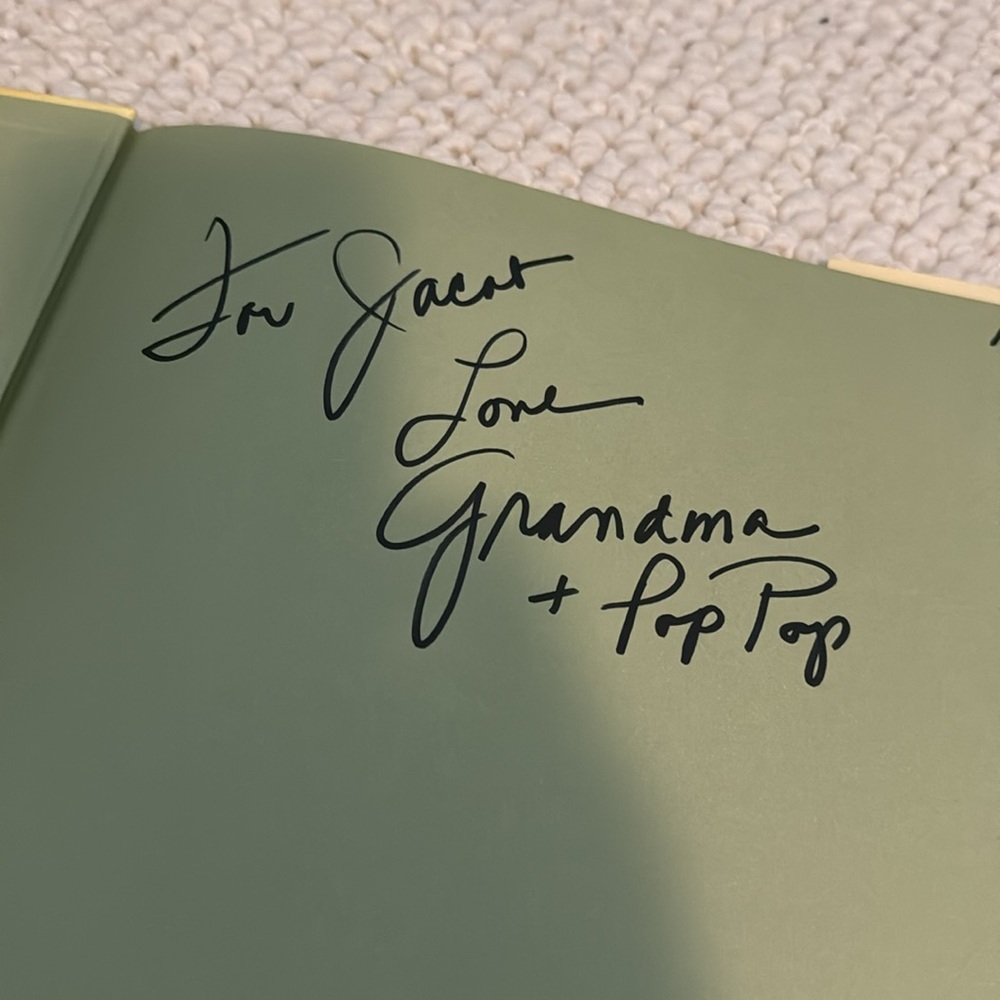 For Jacob
Love
Grandma
+ Pop Pop